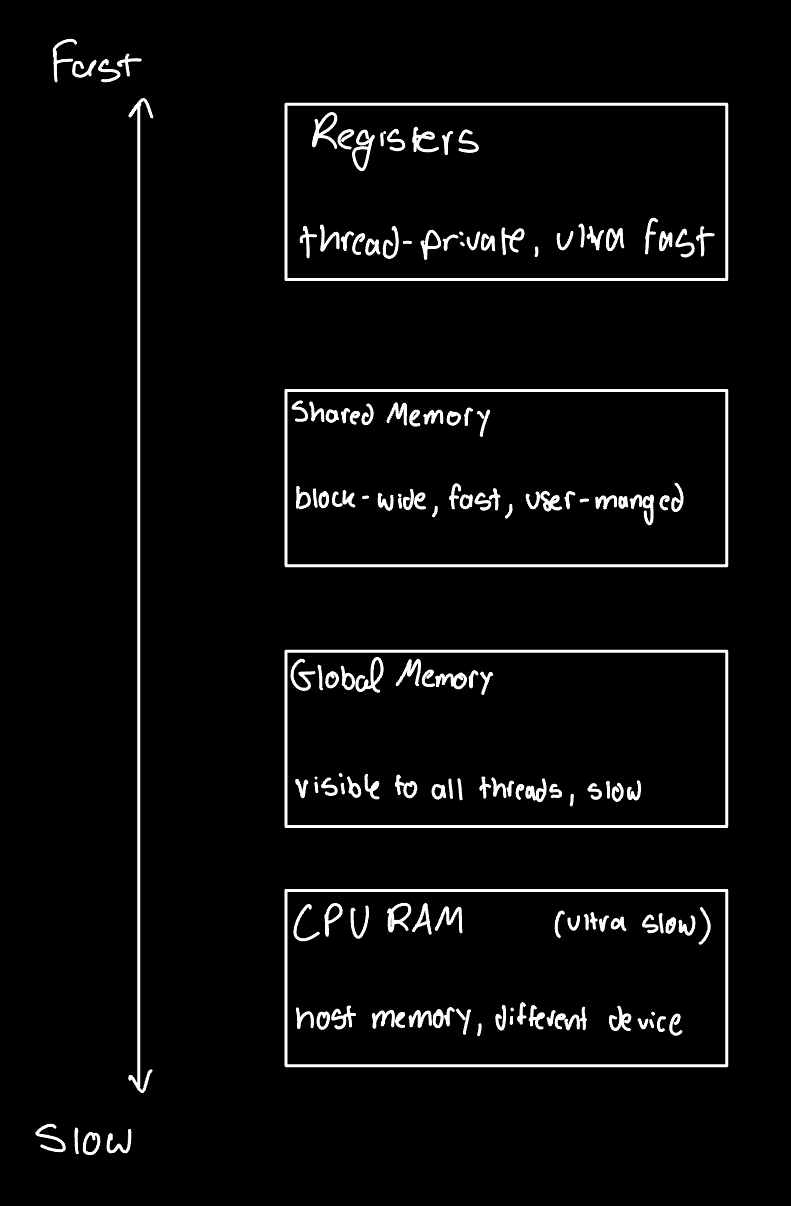 Fast
Registers
thread-private, ultra fast
Shared Memory
block-wide, fast, user-manged
Global Memory
visible to all threads, slow
CPU RAM (ultra slow)
host memory, different device
Slow